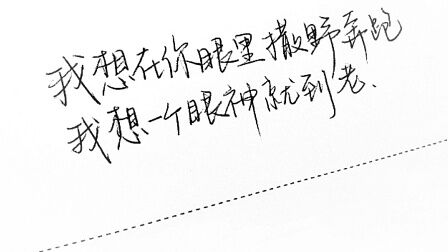 我想在你眼里撒野奔跑
我想一个眼神就到老.